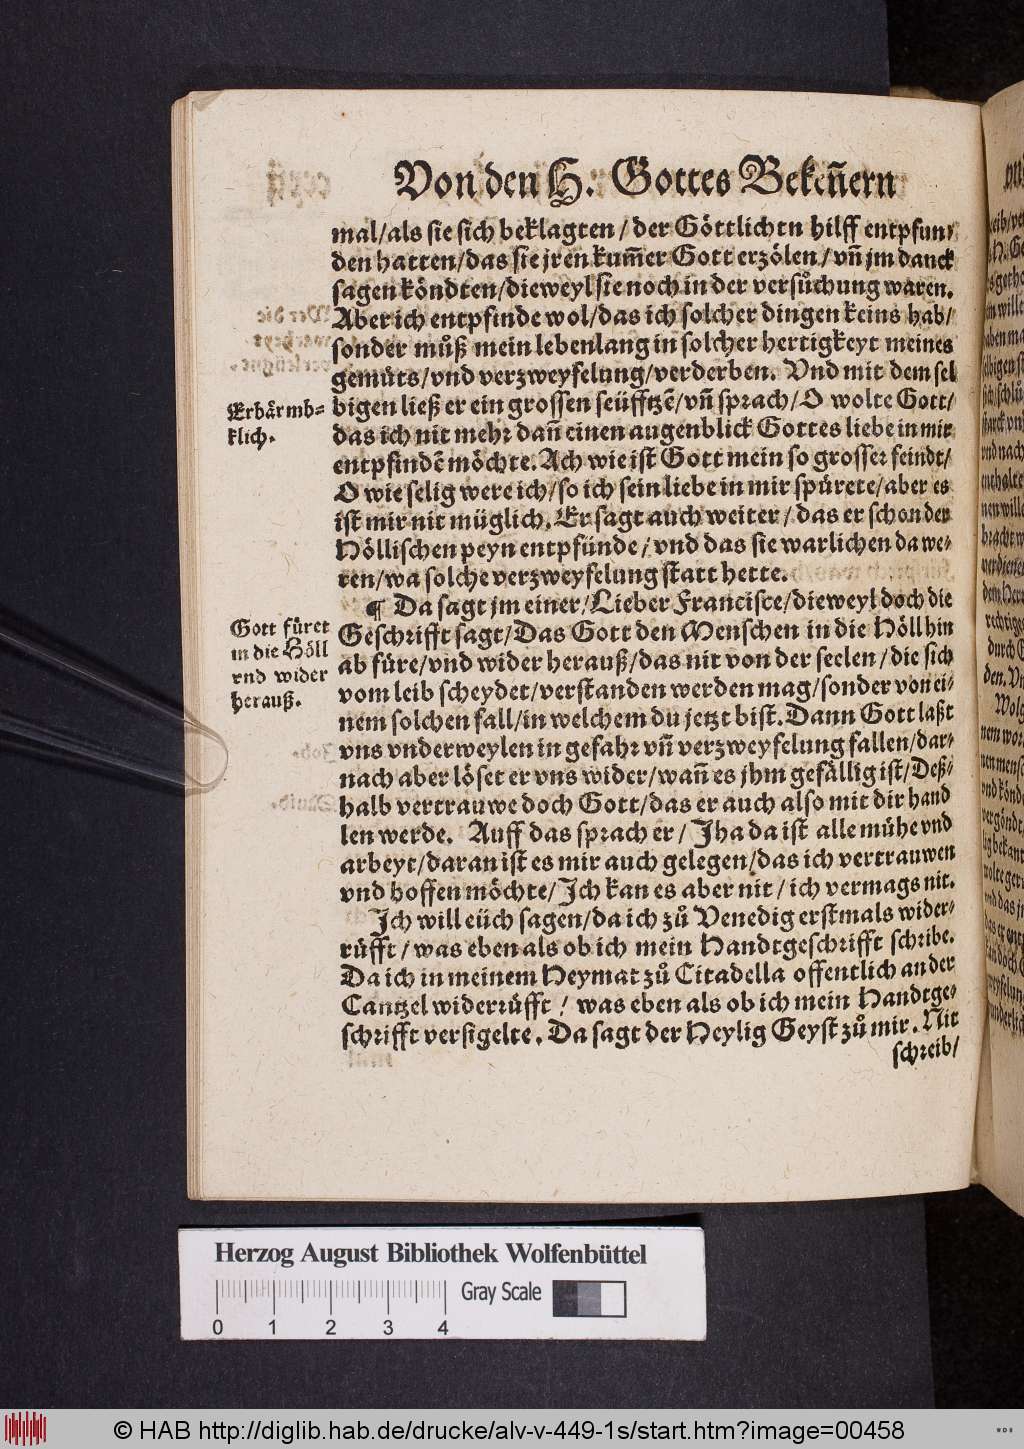 Von den H. Gottes Beken̄ern
mal/als sie sich beklagten/der Göttlichen hilff entpfun/
den hatten/das sie jren kum̄er Gott erzölen/vn̄ jm danck
sagen köndten/dieweyl sie noch in der versůchung waren.
Aber ich entpfinde wol/das ich solcher dingen keins hab/
sonder můß mein lebenlang in solcher hertigkeyt meines
gemüts/vnd verzweyfelung/verderben. Vnd mit dem sel
Erbärmb-
klich.
bigen ließ er ein grossen seüfftzē/vn̄ sprach/O wolte Gott/
das ich nit mehr dan̄ einen augenblick Gottes liebe in mir
entpfindē möchte. Ach wie ist Gott mein so grosser feindt/
O wie selig were ich/so ich sein liebe in mir spürete/aber es
ist mir nit müglich. Er sagt auch weiter/das er schon der
Höllischen peyn entpfünde/vnd das sie warlichen da we-
ren/wa solche verzweyfelung statt hette.
¶ Da sagt jm einer/Lieber Francisce/dieweyl doch die
Gott füret
in die Höll
vnd wider
herauß.
Geschrifft sagt/Das Gott den Menschen in die Höll hin
ab füre/vnd wider herauß/das nit von der seelen/die sich
vom leib scheydet/verstanden werden mag/sonder von ei-
nem solchen fall/in welchem du jetzt bist. Dann Gott laßt
vns vnderweylen in gefahr vn̄ verzweyfelung fallen/dar-
nach aber löset er vns wider/wan̄ es jhm gefällig ist/Deß-
halb vertrauwe doch Gott/das er auch also mit dir hand
len werde. Auff das sprach er/Jha da ist alle mühe vnd
arbeyt/daran ist es mir auch gelegen/das ich vertrauwen
vnd hoffen möchte/Ich kan es aber nit/ich vermags nit.
Ich will eüch sagen/da ich zů Venedig erstmals wider-
rüfft/was eben als ob ich mein Handtgeschrifft schribe.
Da ich in meinem Heymat zů Citadella offentlich an der
Cantzel widerrüfft/was eben als ob ich mein Handtge-
schrifft versigelte. Da sagt der Heylig Geyst zů mir. Nit
schreib/
Herzog August Bibliothek Wolfenbüttel
Gray Scale
0 1 2 3 4
© HAB http://diglib.hab.de/drucke/alv-v-449-1s/start.htm?image=00458